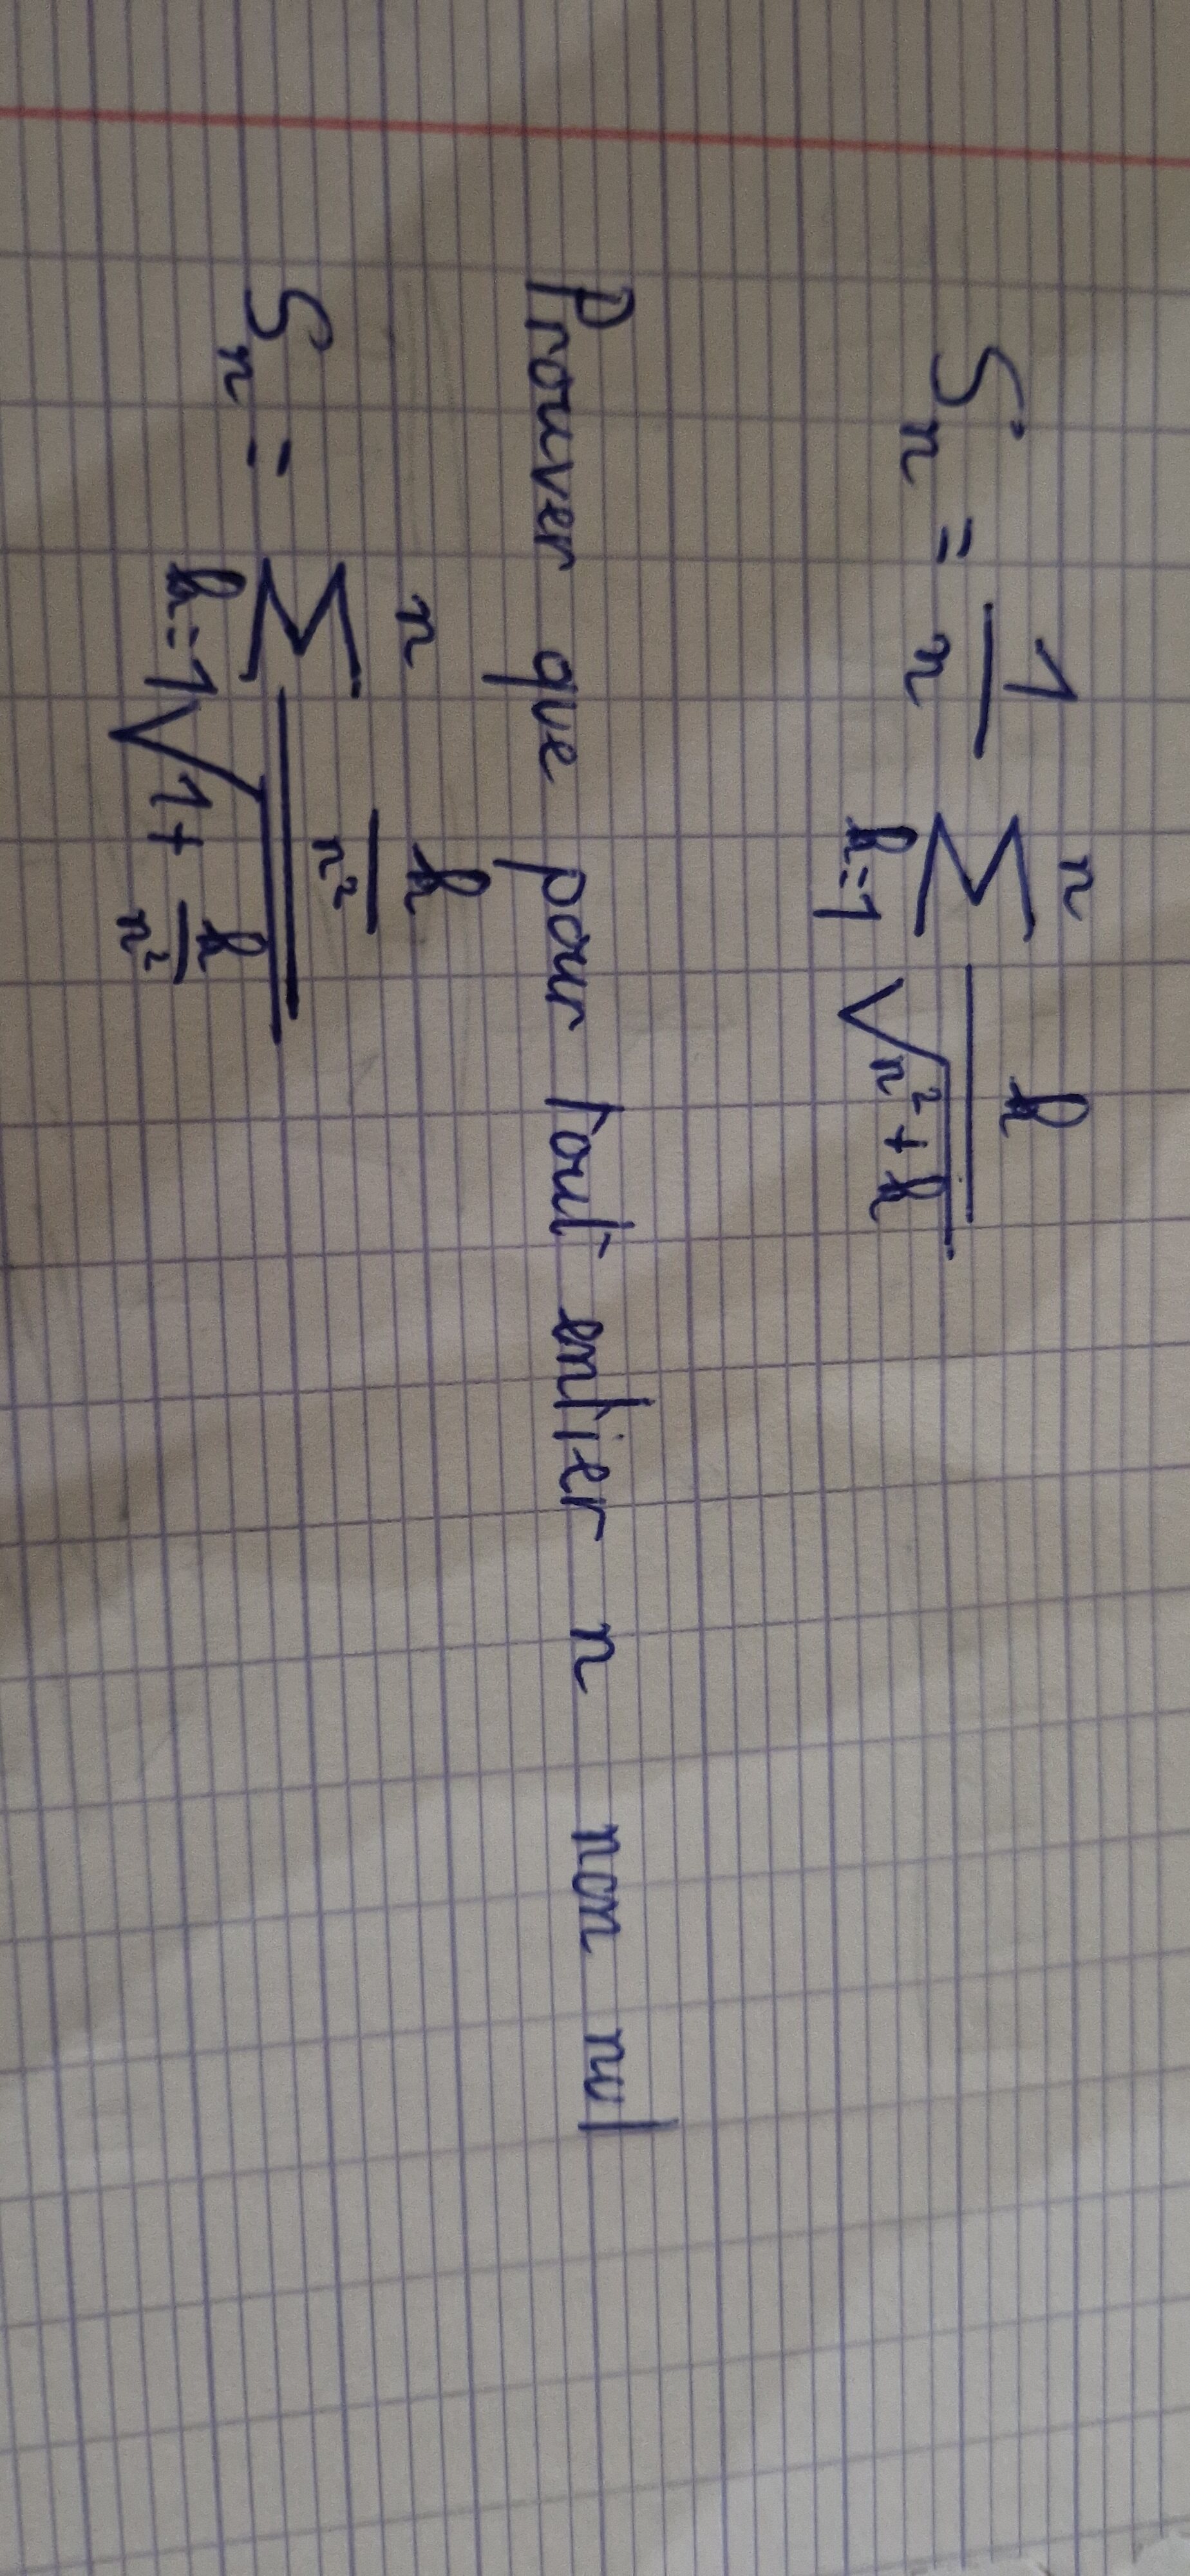 S_n = 1/n \sum_{k=1}^{n} k/\sqrt{n²+k}
Prouver que pour tout entier n non nul
S_n = \sum_{k=1}^{n} (k/n²)/\sqrt{1+k/n²}